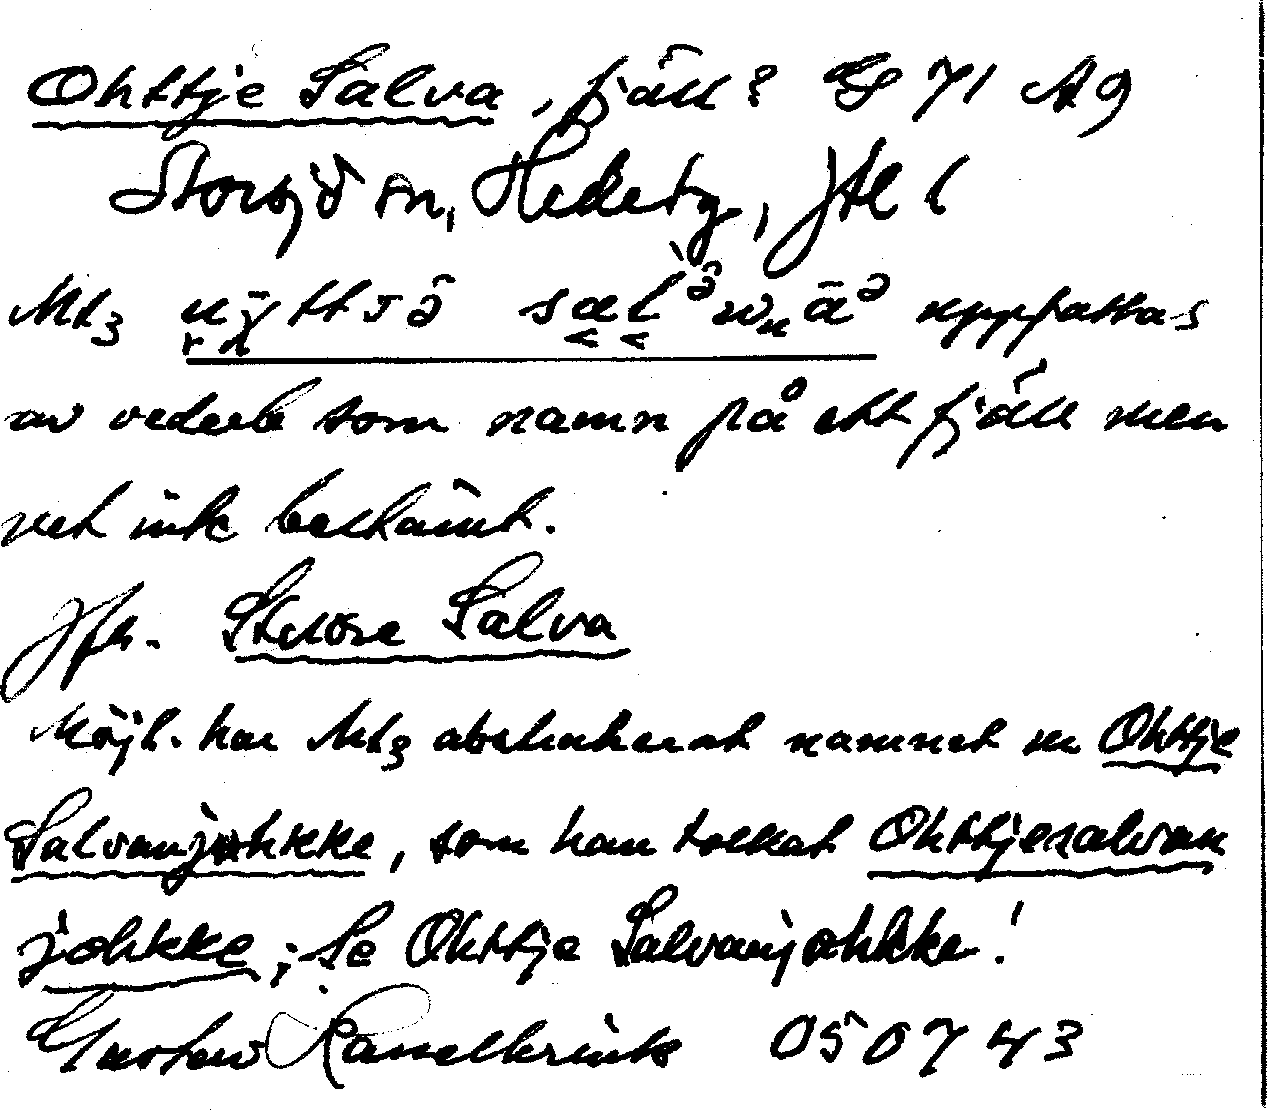 Ohttje Salva, fjäll? Gb 71 A9
Storsjö sn, Hede tg, Jtl l
Mt3 uppfattas
av vederb som namn på ett fjäll men
vet inte bestämt.
Jfr. Stuore Salva
Möjl. har Mt3 abstraherat namnet ur Ohttje
Salvanjohkke, som han tolkat Ohttjesalvan
johkke; Se Ohttje Salvanjohkke!
Gustav Hasselbrink 050743